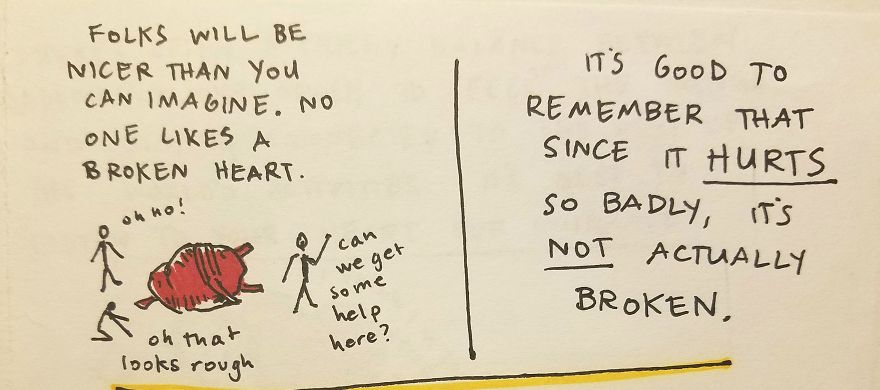 FOLKS WILL BE
NICER THAN YOU
CAN IMAGINE. NO
ONE LIKES A
BROKEN HEART.
oh no!
can
we get
some
help
here?
oh that
looks rough
IT'S GOOD TO
REMEMBER THAT
SINCE IT HURTS
SO BADLY, IT'S
NOT ACTUALLY
BROKEN.